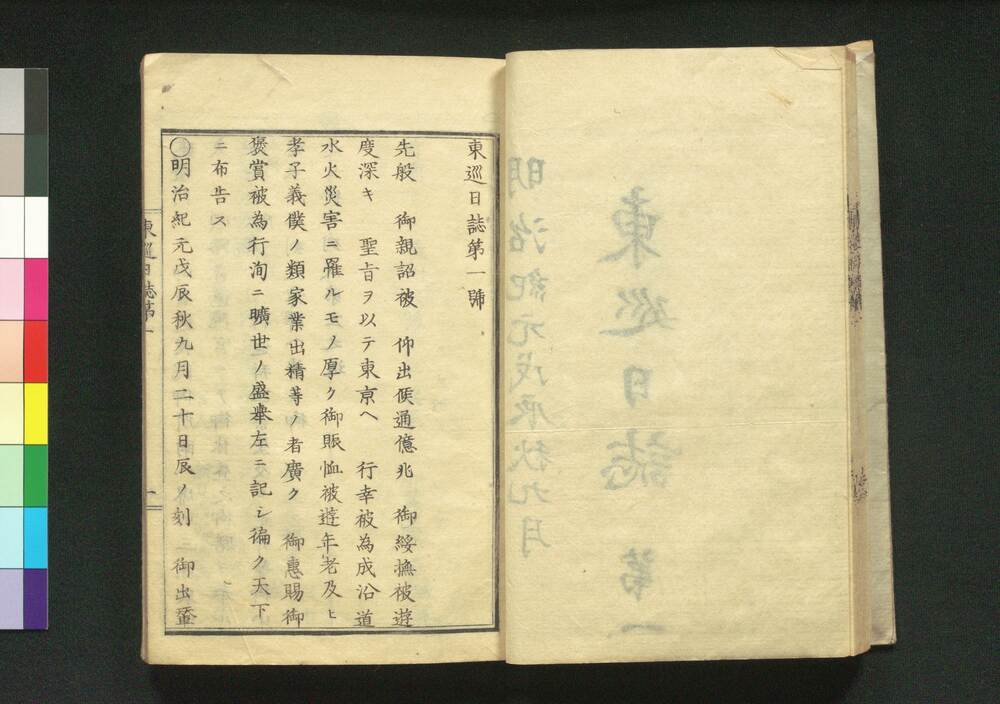 明治紀元戊辰秋九月
東巡日誌 第一
東巡日誌第一号
先般 御親詔被 仰出候通億兆 御綏撫被遊
度深キ 聖旨ヲ以テ東京ヘ 行幸被為成沿道
水火災害ニ罹ルモノ厚ク御賑恤被遊年老及ヒ
孝子義僕ノ類家業出精等ノ者廣ク 御惠賜御
褒賞被為行洵ニ曠世ノ盛擧左ニ記シ徧ク天下
ニ布告ス
〇明治紀元戊辰秋九月二十日辰ノ刻ニ御出輦
東巡日誌第一
一